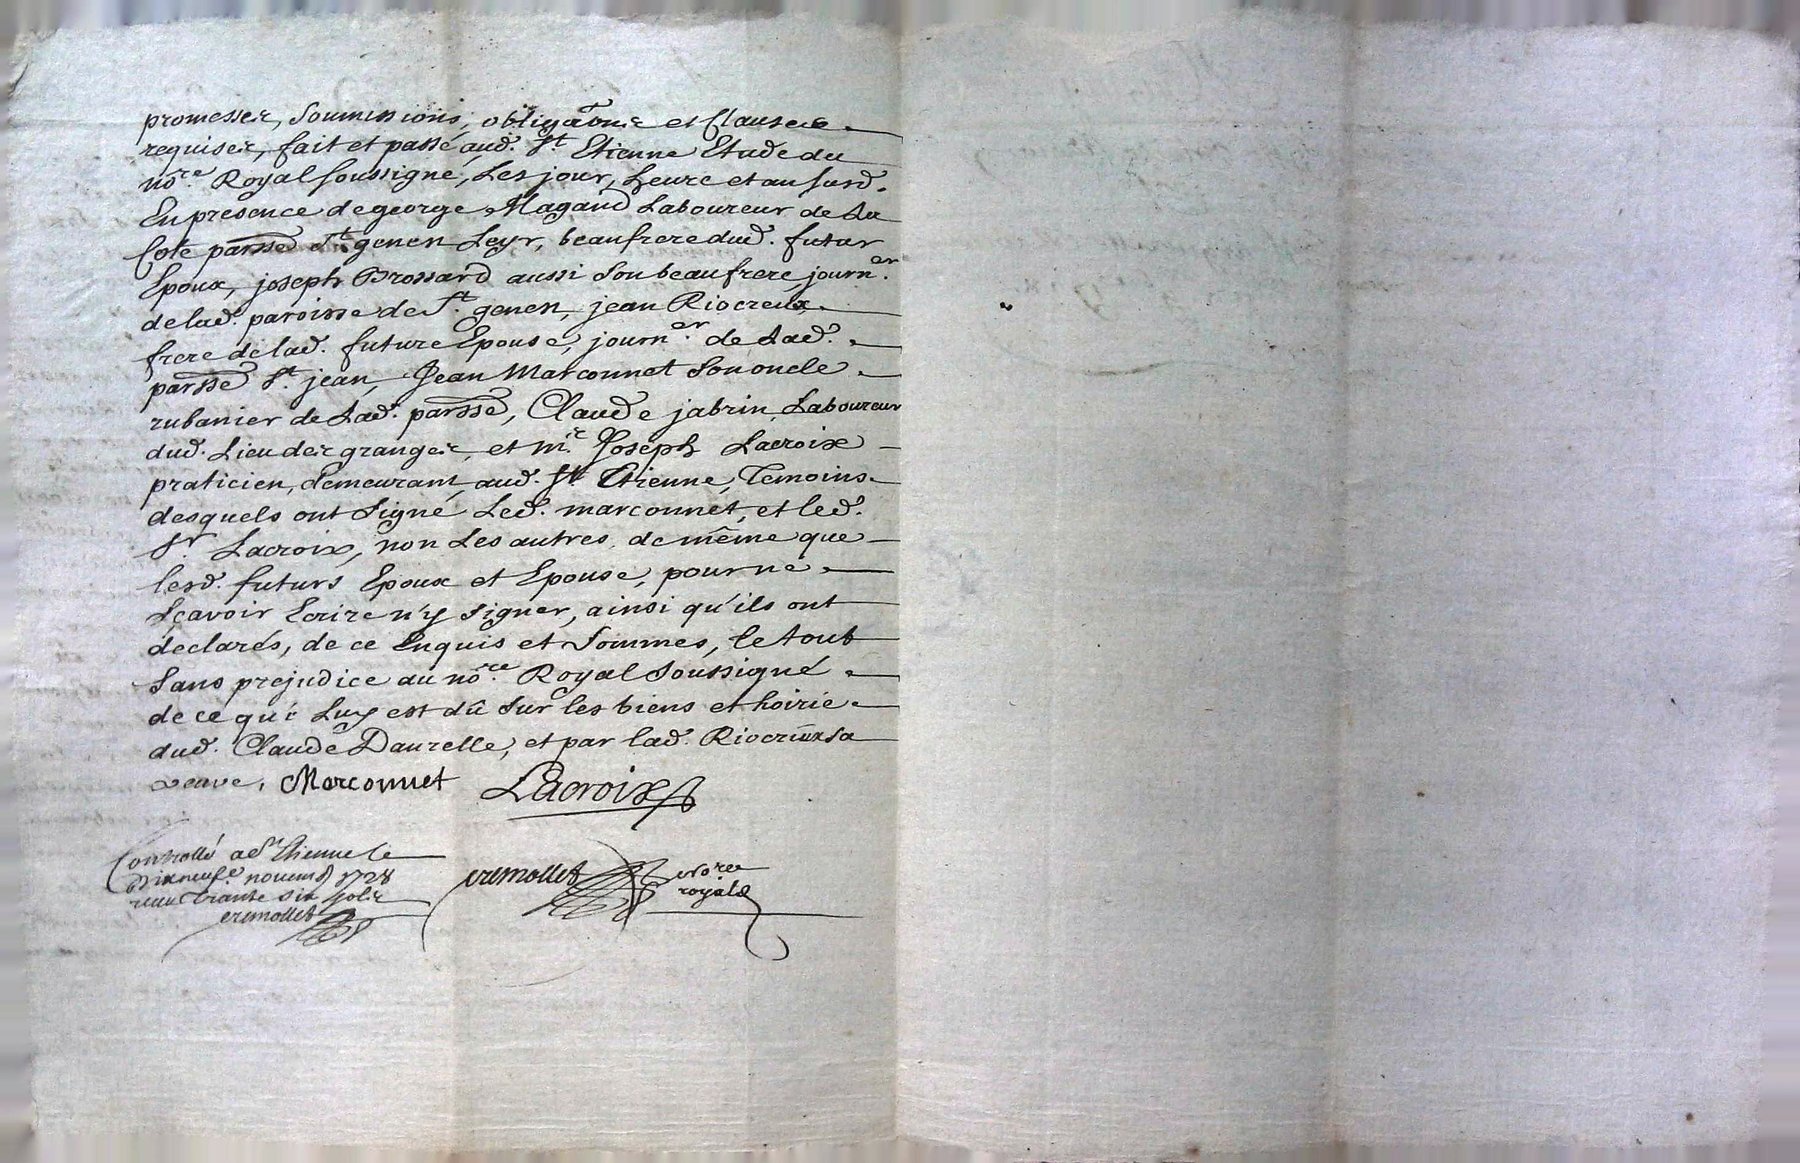 promesses, soumissions, obligãons et Clauses
requises, fait et passé aud. St. Etienne Etude du
nore. Royal soussigné, Les jour, heure et an susd.
En presence de george Magand Laboureur de La
Cote parsse St. genen Leyr, beaufrere dud. futur
Epoux, joseph Brossard aussi son beaufrere, journer.
de lad. paroisse de St. genen, jean Riocreux
frere de lad. future Epouse, journer. de Lad.
parsse St. jean, Jean Marconnet son oncle
rubanier de Lad. parsse, Claude jabrin Laboureur
dud. Lieu des granges, et mre. Joseph Lacroix
praticien, demeurant aud. St Etienne, Temoins
desquels ont signé Led. marconnet, et led.
Sr. Lacroix, non Les autres, de même que
lesd. futurs Epoux et Epouse, pour ne
sçavoir Ecrire n'y signer, ainsi qu'ils ont
declarés, de ce Enquis et sommes, le tout
sans prejudice au nore. Royal soussigné
de ce qui Luy est dû sur les biens et hoirie
dud. Claude Daurelle, et par lad. Riocreux sa
veuve. Marconnet Lacroix
Controllé a St Etienne le
dixneufe. novemb 1728
reçu trante six sols
cremollet
cremollet nore
royal